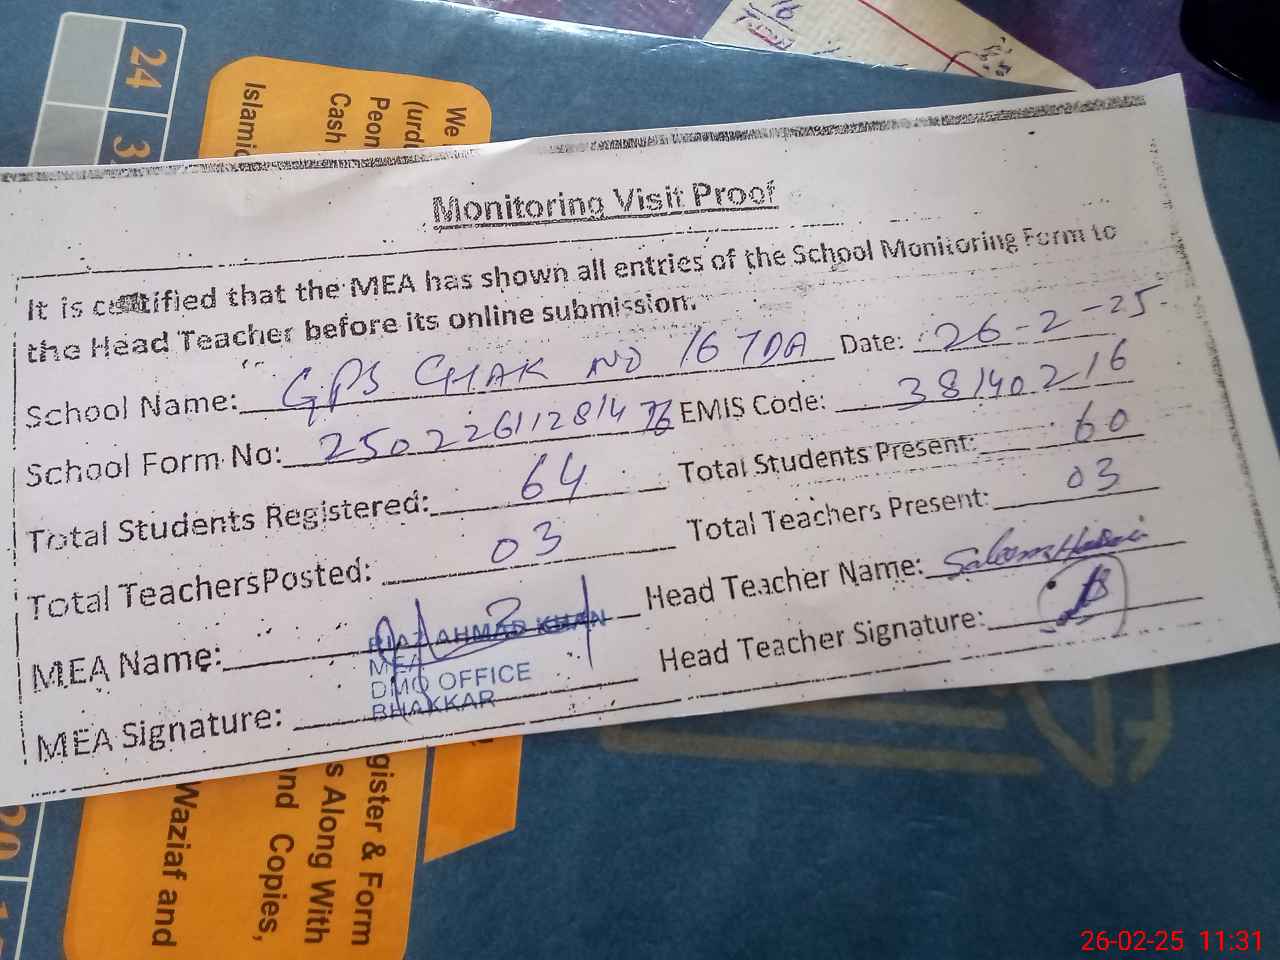 24
3
Islamic
Cash
Peon
(urdu
We
Monitoring Visit Proof
It is certified that the MEA has shown all entries of the School Monitoring Form to
the Head Teacher before its online submission.
School Name: GPS CHAK NO 16 TDA Date: 26-2-25
School Form No: 250226112814 EMIS Code: 38140216
Total Students Registered: 64 Total Students Present: 60
Total Teachers Posted: 03 Total Teachers Present: 03
MEA Name: RIAZ AHMAD KHAN Head Teacher Name:
MEA
DMO OFFICE
BHAKKAR
MEA Signature: Head Teacher Signature:
gister & Form
s Along With
nd Copies,
Waziaf and
20
26-02-25 11:31